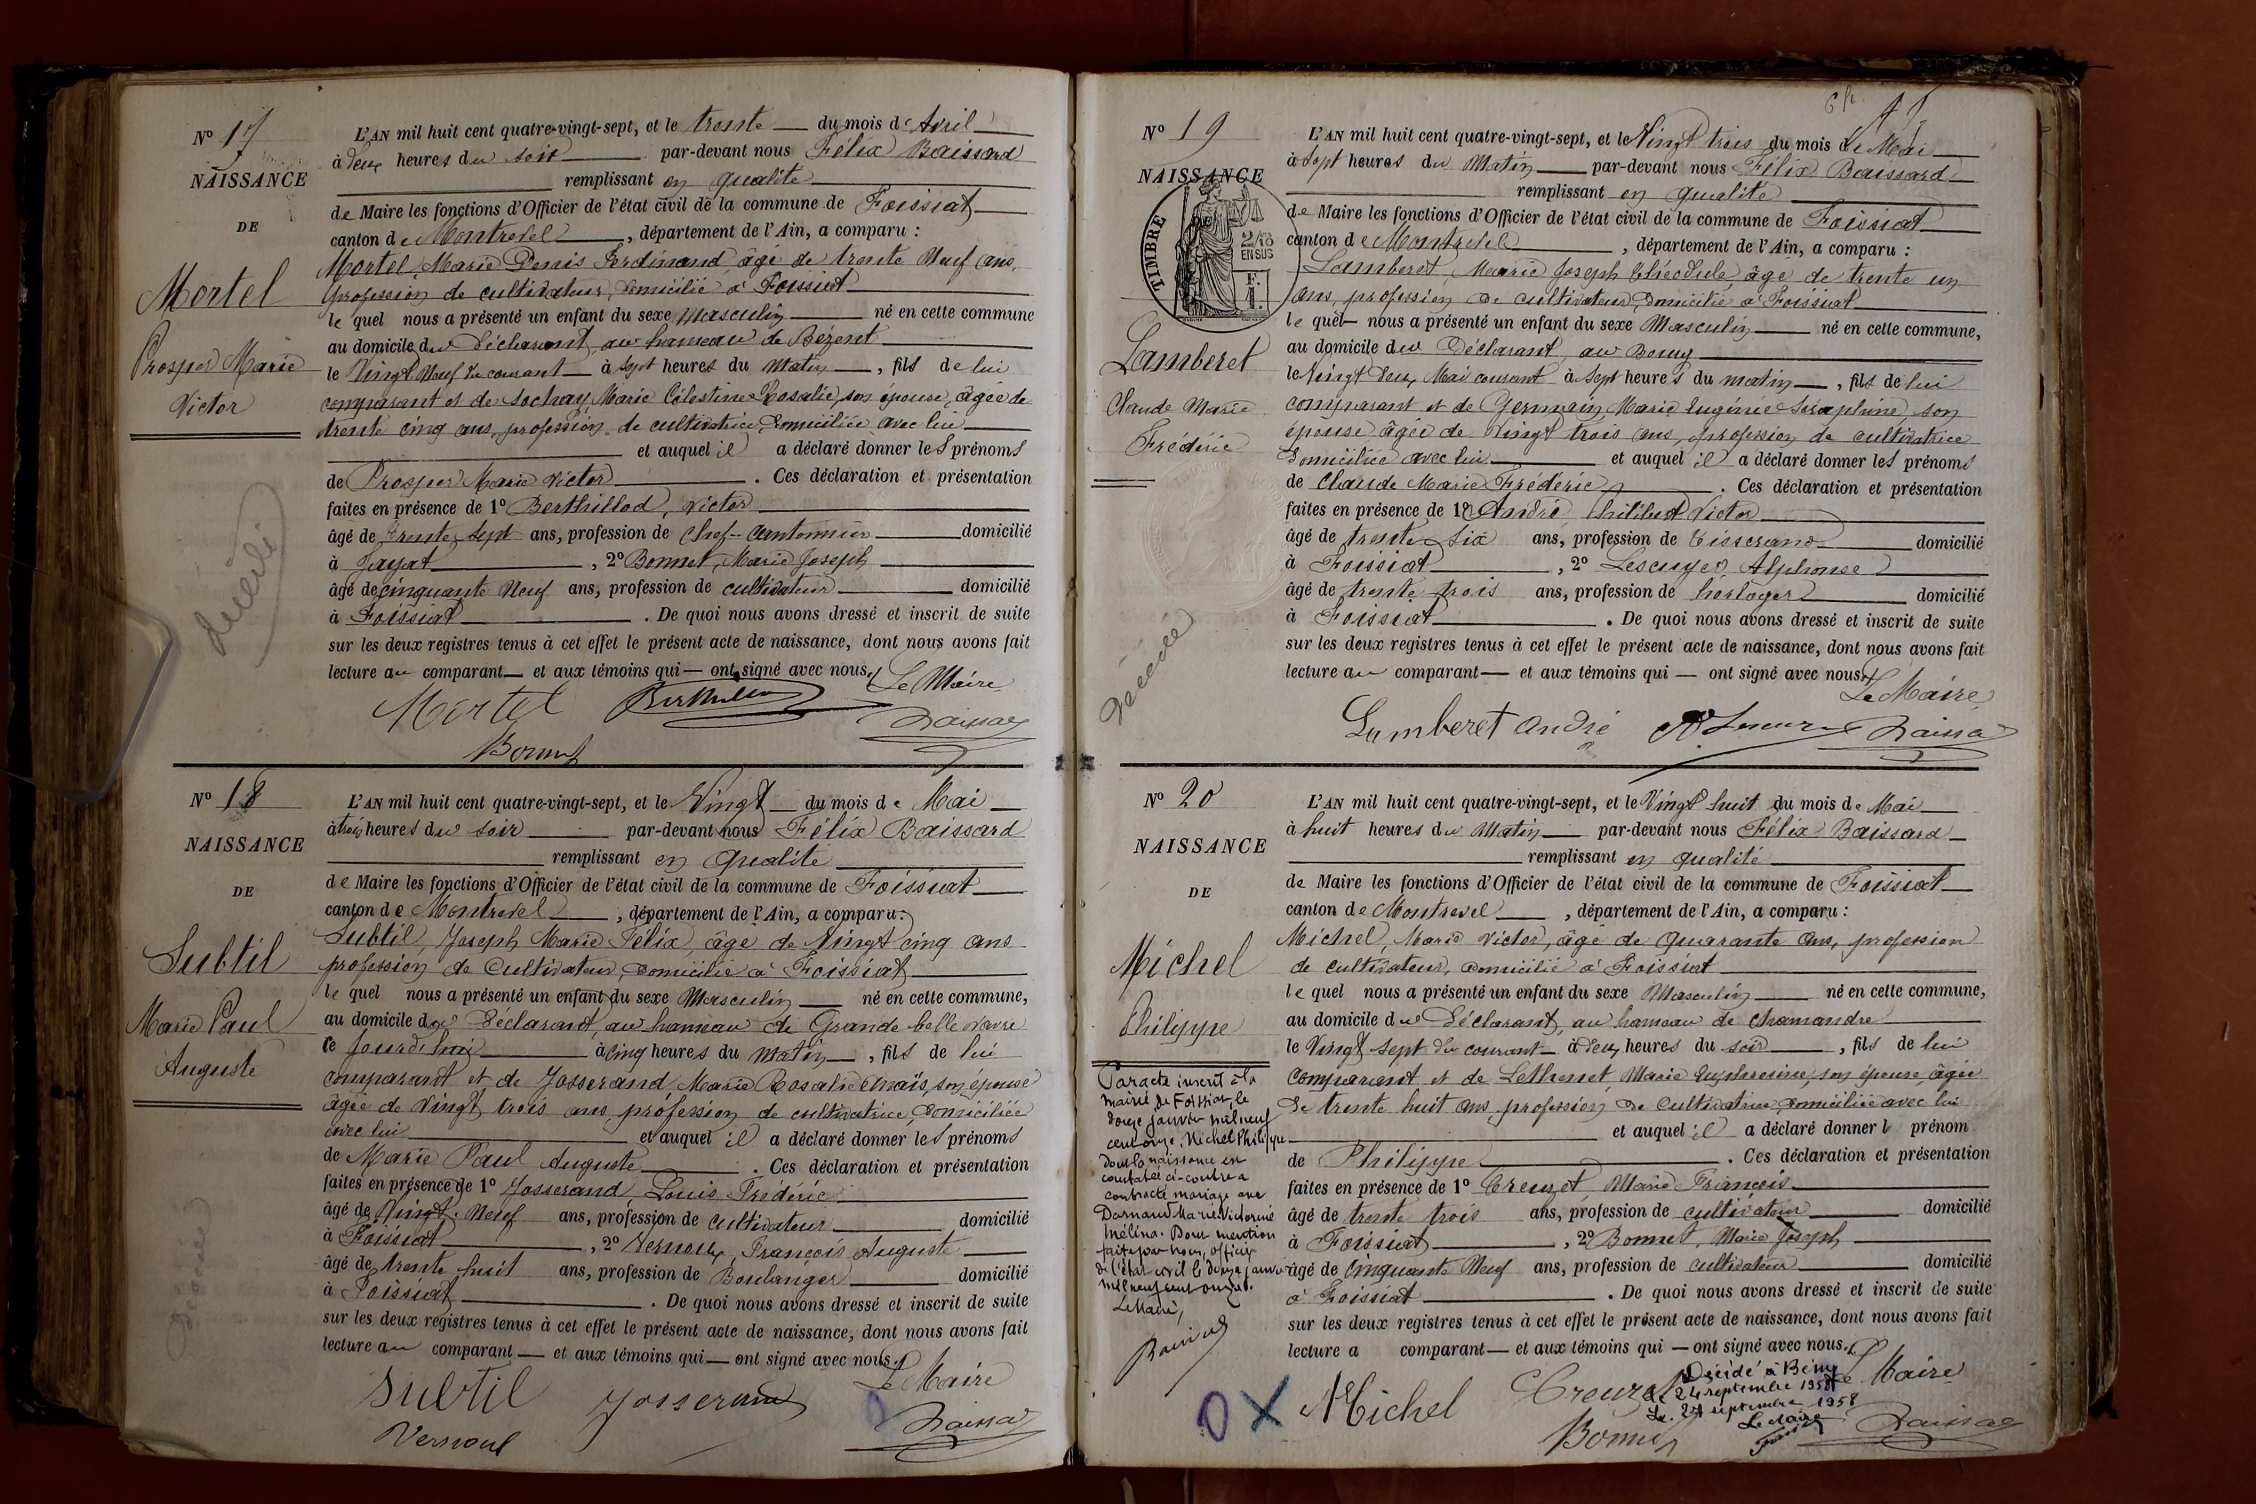 N° 17
NAISSANCE
DE
Mortel
Prosper Marie
Victor
décédé
L'AN mil huit cent quatre-vingt-sept, et le trente du mois d'Avril
à deux heures du soir par-devant nous Félix Baissard
remplissant en qualité
de Maire les fonctions d'Officier de l'état civil de la commune de Foissiat
canton de Montrevel, département de l'Ain, a comparu :
Mortel, Marie Denis Ferdinand, âgé de trente Neuf ans,
profession de cultivateur, domicilié à Foissiat
le quel nous a présenté un enfant du sexe Masculin né en cette commune
au domicile du déclarant, au hameau de Bézent
le Vingt Neuf du courant à sept heures du Matin, fils de lui
comparant et de Sochay, Marie Célestine Rosalie, son épouse, âgée de
trente cinq ans, profession de cultivatrice, domiciliée avec lui
et auquel il a déclaré donner les prénoms
de Prosper Marie Victor. Ces déclaration et présentation
faites en présence de 1° Berthillod, Victor
âgé de trente sept ans, profession de Chef-Cantonnier domicilié
à Jayat, 2° Bonnet, Marie Joseph
âgé de cinquante Neuf ans, profession de cultivateur domicilié
à Foissiat. De quoi nous avons dressé et inscrit de suite
sur les deux registres tenus à cet effet le présent acte de naissance, dont nous avons fait
lecture au comparant et aux témoins qui ont signé avec nous.
Le Maire
Mortel
Bonnet
N° 18
NAISSANCE
DE
Subtil
Marie Paul
Auguste
L'AN mil huit cent quatre-vingt-sept, et le Vingt du mois de Mai
à trois heures du soir par-devant nous Félix Baissard
remplissant en qualité
de Maire les fonctions d'Officier de l'état civil de la commune de Foissiat
canton de Montrevel, département de l'Ain, a comparu :
Subtil, Joseph Marie Félix, âgé de Vingt cinq ans
profession de Cultivateur, domicilié à Foissiat
le quel nous a présenté un enfant du sexe Masculin né en cette commune,
au domicile du déclarant, au hameau de Grande belle
ce jourd'hui à cinq heures du Matin, fils de lui
comparant et de Josserand, Marie Rosalie Anaïs, son épouse
âgée de Vingt trois ans, profession de cultivatrice, domiciliée
avec lui et auquel il a déclaré donner les prénoms
de Marie Paul Auguste. Ces déclaration et présentation
faites en présence de 1° Josserand, Louis Frédéric
âgé de Vingt-Neuf ans, profession de cultivateur domicilié
à Foissiat, 2° Vernoux, François Auguste
âgé de trente huit ans, profession de Boulanger domicilié
à Foissiat. De quoi nous avons dressé et inscrit de suite
sur les deux registres tenus à cet effet le présent acte de naissance, dont nous avons fait
lecture au comparant et aux témoins qui ont signé avec nous.
Le Maire
Subtil Josserand
N° 19
NAISSANCE
TIMBRE
2/10 EN SUS
Lamberet
Claude Marie
Frédéric
Décédé
L'AN mil huit cent quatre-vingt-sept, et le Vingt trois du mois de Mai
à sept heures du Matin par-devant nous Félix Baissard
remplissant en qualité
de Maire les fonctions d'Officier de l'état civil de la commune de Foissiat
canton de Montrevel, département de l'Ain, a comparu :
Lamberet, Marie Joseph Théodule, âgé de trente un
ans, profession de cultivateur, domicilié à Foissiat
le quel nous a présenté un enfant du sexe Masculin né en cette commune,
au domicile du Déclarant, au Bourg
le Vingt deux Mai courant à sept heures du matin, fils de lui
comparant et de Germain, Marie Eugénie Séraphine, son
épouse âgée de Vingt trois ans, profession de cultivatrice
domiciliée avec lui et auquel il a déclaré donner les prénoms
de Claude Marie Frédéric. Ces déclaration et présentation
faites en présence de 1° André, Philibert Victor
âgé de trente six ans, profession de Tisserand domicilié
à Foissiat, 2° Lescuyer, Alphonse
âgé de trente trois ans, profession de horloger domicilié
à Foissiat. De quoi nous avons dressé et inscrit de suite
sur les deux registres tenus à cet effet le présent acte de naissance, dont nous avons fait
lecture au comparant et aux témoins qui ont signé avec nous.
Le Maire
Lamberet André
N° 20
NAISSANCE
DE
Michel
Philippe
Par acte inscrit à la
mairie de Foissiat, le
douze janvier mil neuf
cent onze, Michel Philippe
dont la naissance est
constatée ci-contre a
contracté mariage avec
Darnand Marie Victorine
Mélina. Dont mention
faite par nous, officier
de l'état civil le douze janvier
mil neuf cent onze.
Le Maire,
L'AN mil huit cent quatre-vingt-sept, et le Vingt huit du mois de Mai
à huit heures du Matin par-devant nous Félix Baissard
remplissant en qualité
de Maire les fonctions d'Officier de l'état civil de la commune de Foissiat
canton de Montrevel, département de l'Ain, a comparu :
Michel, Marie Victor, âgé de quarante ans, profession
de cultivateur, domicilié à Foissiat
le quel nous a présenté un enfant du sexe Masculin né en cette commune,
au domicile du Déclarant, au hameau de Chamandre
le Vingt sept du courant à deux heures du soir, fils de lui
comparant et de Lethenet, Marie Euphrosine, son épouse, âgée
de trente huit ans, profession de Cultivatrice, domiciliée avec lui
et auquel il a déclaré donner l prénom
de Philippe. Ces déclaration et présentation
faites en présence de 1° Creuzet, Marie François
âgé de trente trois ans, profession de cultivateur domicilié
à Foissiat, 2° Bonnet, Marie Joseph
âgé de cinquante Neuf ans, profession de cultivateur domicilié
à Foissiat. De quoi nous avons dressé et inscrit de suite
sur les deux registres tenus à cet effet le présent acte de naissance, dont nous avons fait
lecture a comparant et aux témoins qui ont signé avec nous.
Le Maire
Décédé à Bény
le 24 septembre 1958
Le 27 septembre 1958
Le Maire
Michel Creuzet
Bonnet